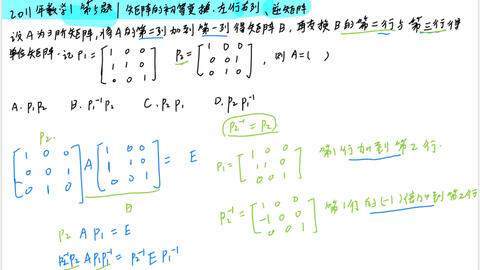 2011年数学1 第5题 | 矩阵的初等变换.左行右列、逆矩阵
设A为3阶矩阵,将A的第二列加到第一列得矩阵B,再交换B的第二行与第三行得
单位矩阵.记 P₁ = [1 0 0; 1 1 0; 0 0 1] P₂ = [1 0 0; 0 0 1; 0 1 0], 则 A = ( )
A. P₁P₂ B. P₁⁻¹P₂ C. P₂P₁ D. P₂P₁⁻¹
P₂. P₂⁻¹ = P₂
[1 0 0; 0 0 1; 0 1 0] A [1 0 0; 1 1 0; 0 0 1] = E
B
P₁ = [1 0 0; 1 1 0; 0 0 1] 第1行加到第2行.
P₂ A P₁ = E
P₂⁻¹P₂ A P₁P₁⁻¹ = P₂⁻¹ E P₁⁻¹
P₂⁻¹ = [1 0 0; -1 0 0; 0 0 1] 第1行的(-1)倍加到第2行